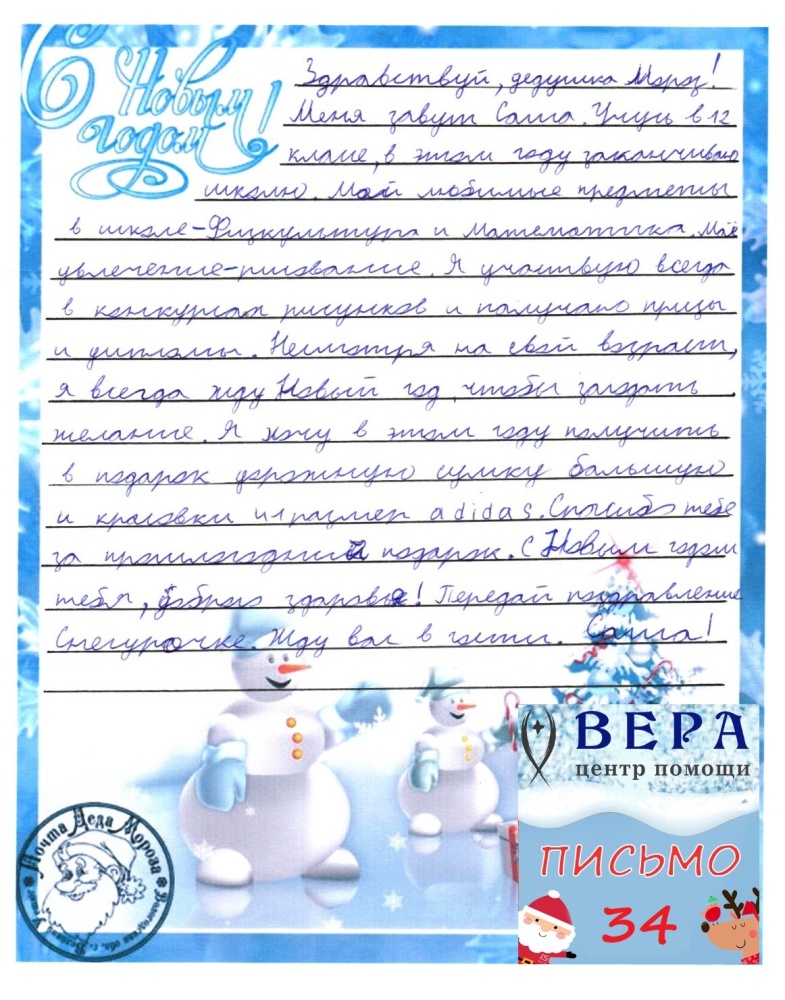 С Новым
годом!
Здравствуй, дедушка Мороз!
Меня завут Саша. Учусь в 12
класе, в этом году заканчиваю
школю. Мой любимые предметы
в школе-Физкультура и Математика. Моё
увлечение-рисование. Я участвую всегда
в конкурсах рисунков и получаю призы
и дипломы. Несмотря на свой возраст,
я всегда жду Новый год, чтобы загадать
желание. Я хочу в этом году получить
в подарок дорожную сумку большую
и красовки 41размер adidas. Спасибо тебе
за прошлогодний подарок. С Новым годом
тебя, доброго здоровья! Передай поздравление
Снегурочке. Жду вас в гости. Саша!
ВЕРА
центр помощи
ПИСЬМО
34
Почта Деда Мороза